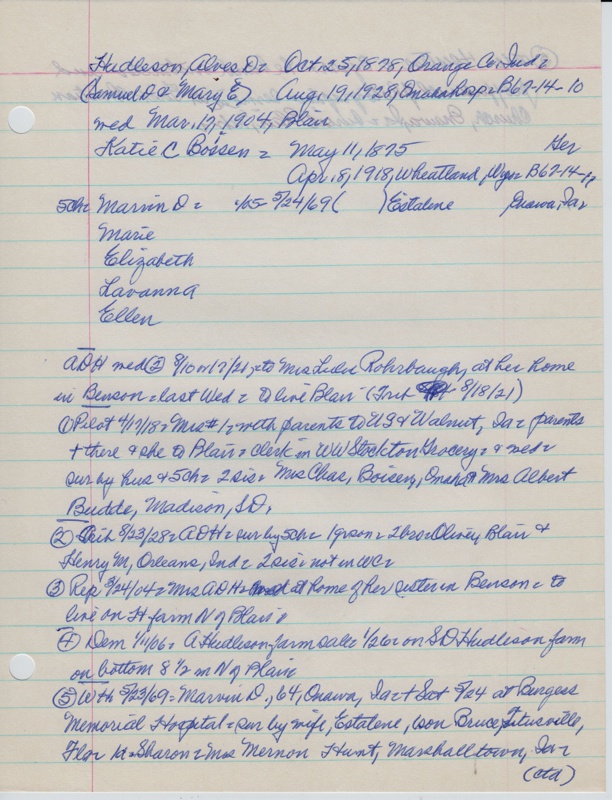 Hudleson, Alves D = Oct. 25, 1878, Orange Co, Ind =
(Samuel D & Mary E) Aug. 19, 1928, Omaha Hosp = B67-14-10
med Mar. 17, 1904, Blair
Katie C Boisen = May 11, 1875 Ger
Apr. 8, 1918, Wheatland, Wyo = B67-14-
5ch = Marvin D = 5/24/69 ( ) Estalene Onawa, Ia =
Marie
Elizabeth
Lavanna
Ellen
ADH med ② 8/10 or 17/21, = to Mrs Rohrbaugh, at her home
in Benson = last Wed = to live Blair (Trib 8/18/21)
① Pilot 4/17/18 = Mrs #1 = with parents to US & Walnut, Ia = parents
+ there & she to Blair = clerk in WW Stockton Grocery = & med =
sur by hus & 5ch = 2 sis = Mrs Chas, Boisen, Omaha & Mrs Albert
Budde, Madison, SD,
② 8/23/28 = ADH = sur by 5ch = 1 grson = 2 bro = Oliver, Blair &
Henry M, Orleans, Ind = 2 sis = not in WC =
③ Rep 3/24/04 = Mrs ADH = at home of her sister in Benson = to
live on H farm N of Blair =
④ Dem 1/11/06 = A Hudleson, farm sale 1/26 = on SD Hudleson farm
on bottom 8 1/2 m N of Blair
⑤ Wth 5/23/69 = Marvin D., 64, Onawa, Ia + Sat 5/24 at Burgess
Memorial Hospital = sur by wife, Estalene, son Bruce, Titusville,
Fla = Sharon = Mrs Mernon Hunt, Marshalltown, Ia =
(ctd)